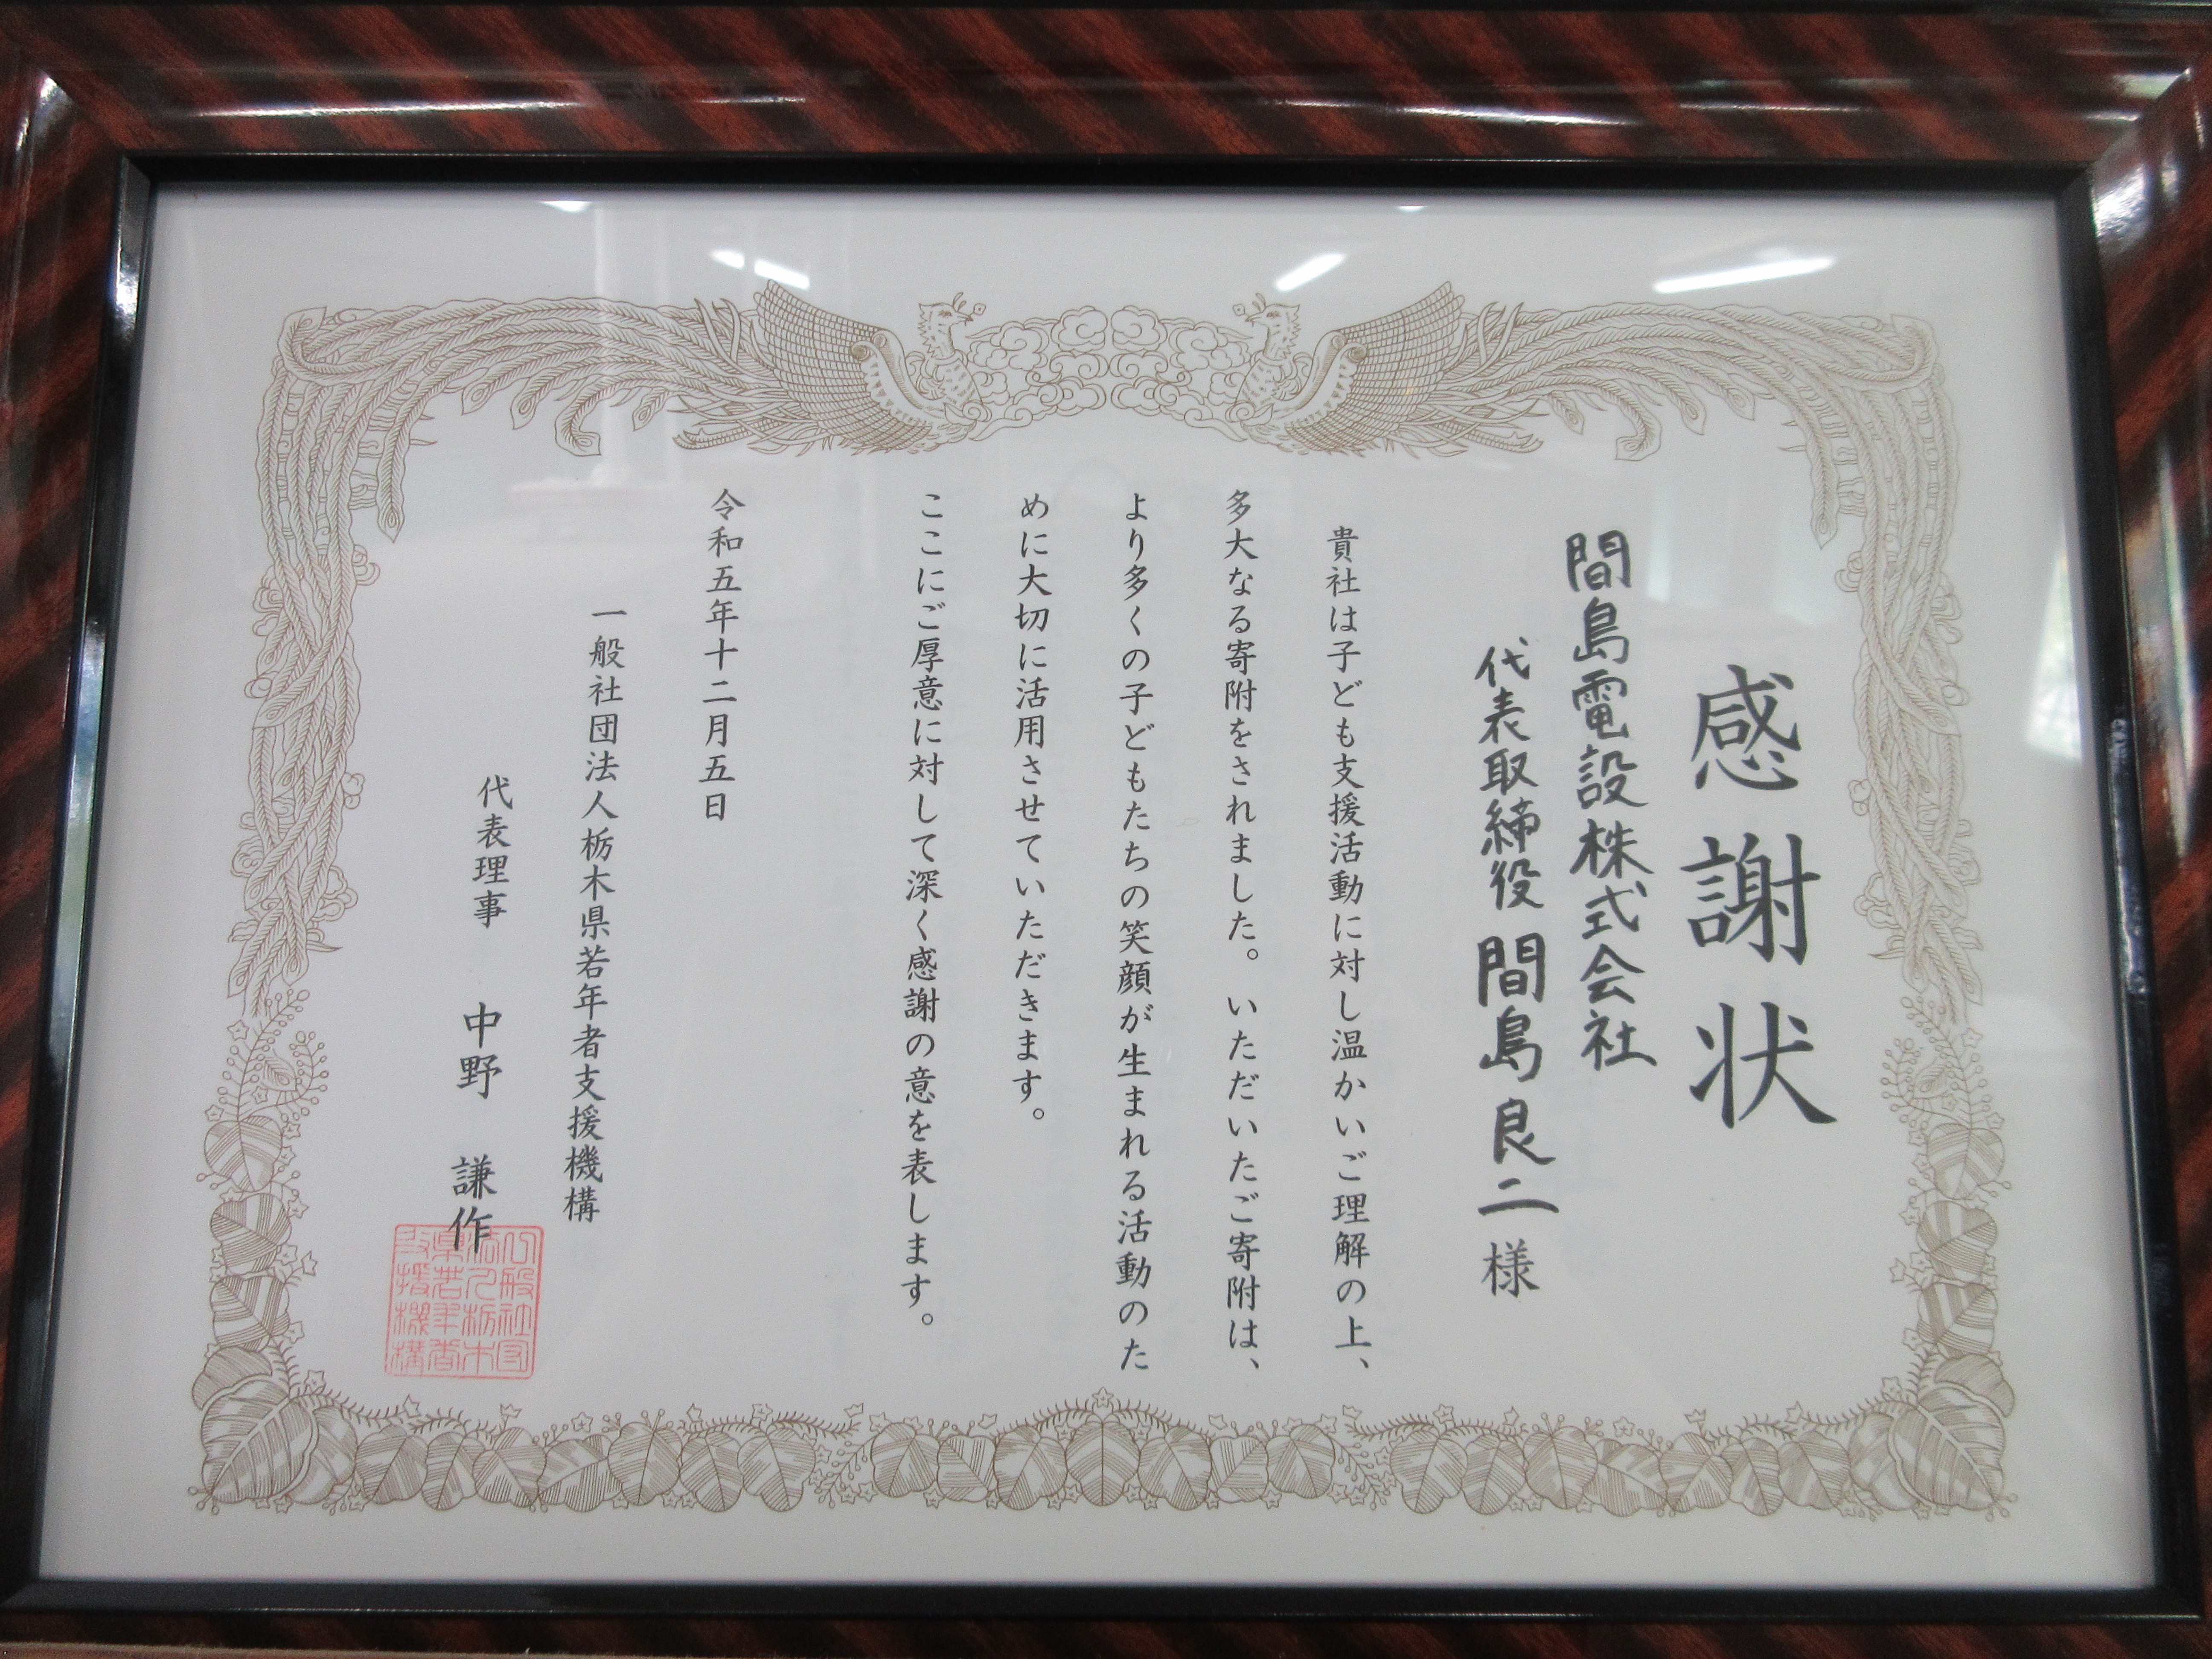 感謝状
間島電設株式会社
代表取締役 間島良二様
貴社は子ども支援活動に対し温かいご理解の上、
多大なる寄附をされました。いただいたご寄附は、
より多くの子どもたちの笑顔が生まれる活動のた
めに大切に活用させていただきます。
ここにご厚意に対して深く感謝の意を表します。
令和五年十二月五日
一般社団法人栃木県若年者支援機構
代表理事 中野 謙作
一般社団
法人栃木
県若年者
支援機構